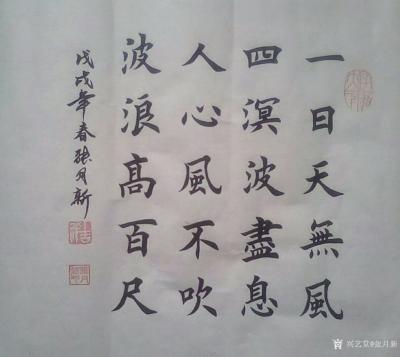 一日天無風
四溟波盡息
人心風不吹
波浪高百尺
戊戌年春張月新
兴艺堂@张月新